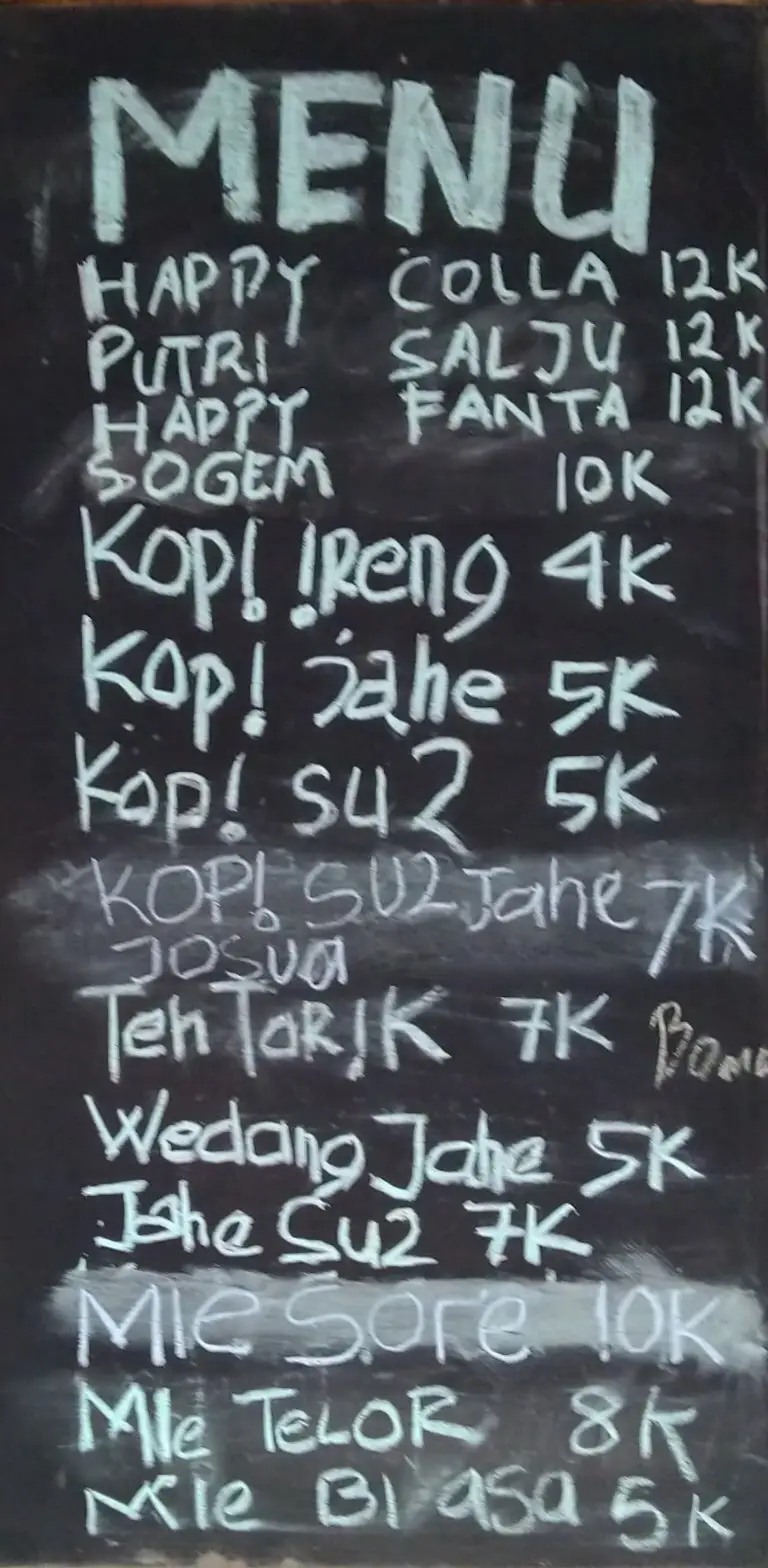 MENU
HAPPY COLLA 12K
PUTRI SALJU 12K
HAPPY FANTA 12K
SOGEM 10K
Kopi ireng 4K
Kopi jahe 5K
Kopi su2 5K
KOPi SU2 Jahe 7K
Josua
Teh Tarik 7K
Wedang Jahe 5K
Jahe Su2 7K
MIe Sore 10K
MIe TeLOR 8K
MIe BIasa 5K